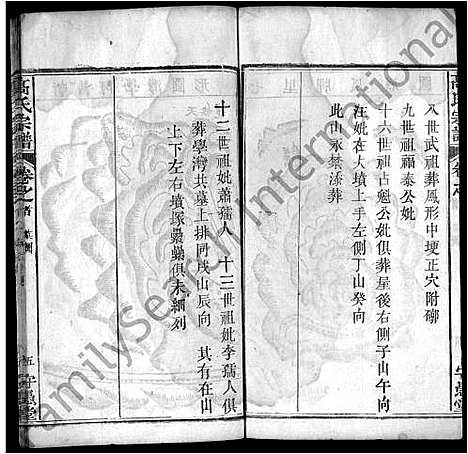 八世武祖葬鳳形中埂正穴附鄉
九世祖福泰公妣
十六世祖古魁公妣俱葬屋後右側子山午向
汪妣在大墳上手左側丁山癸向
此山永禁添葬
十二世祖妣蕭孺人 十三世祖妣李孺人俱
葬學灣共墓上排同戌山辰向 其有在山
上下左右墳塚纍纍俱未細列
高氏宗譜
卷之
五 守愚堂
高氏宗譜
卷之
守愚堂
FamilySearch International